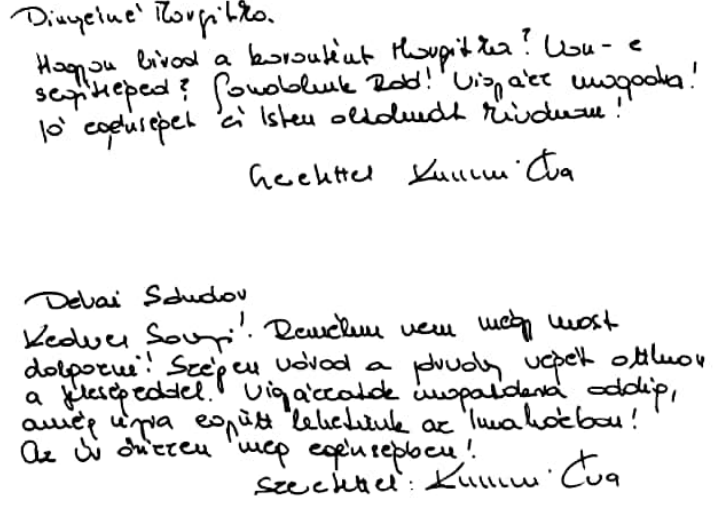 Dinnyeiné Margitka.
Hogyan bírod a karantént Margitka? Van-e
segítséged? Gondolunk Rád! Vigyázz magadra!
Jó egészséget és Isten áldását kívánom!
Szeretettel Éva
Dévai Sándor
Kedves Sanyi! Remélem nem mész most
dolgozni! Szépen várod a jobb végét otthon
a feleségeddel. Vigyázzatok magatokra addig,
amíg újra együtt lehetünk az Imaházban!
Az Úr őrizzen meg egészségben!
Szeretettel: Éva